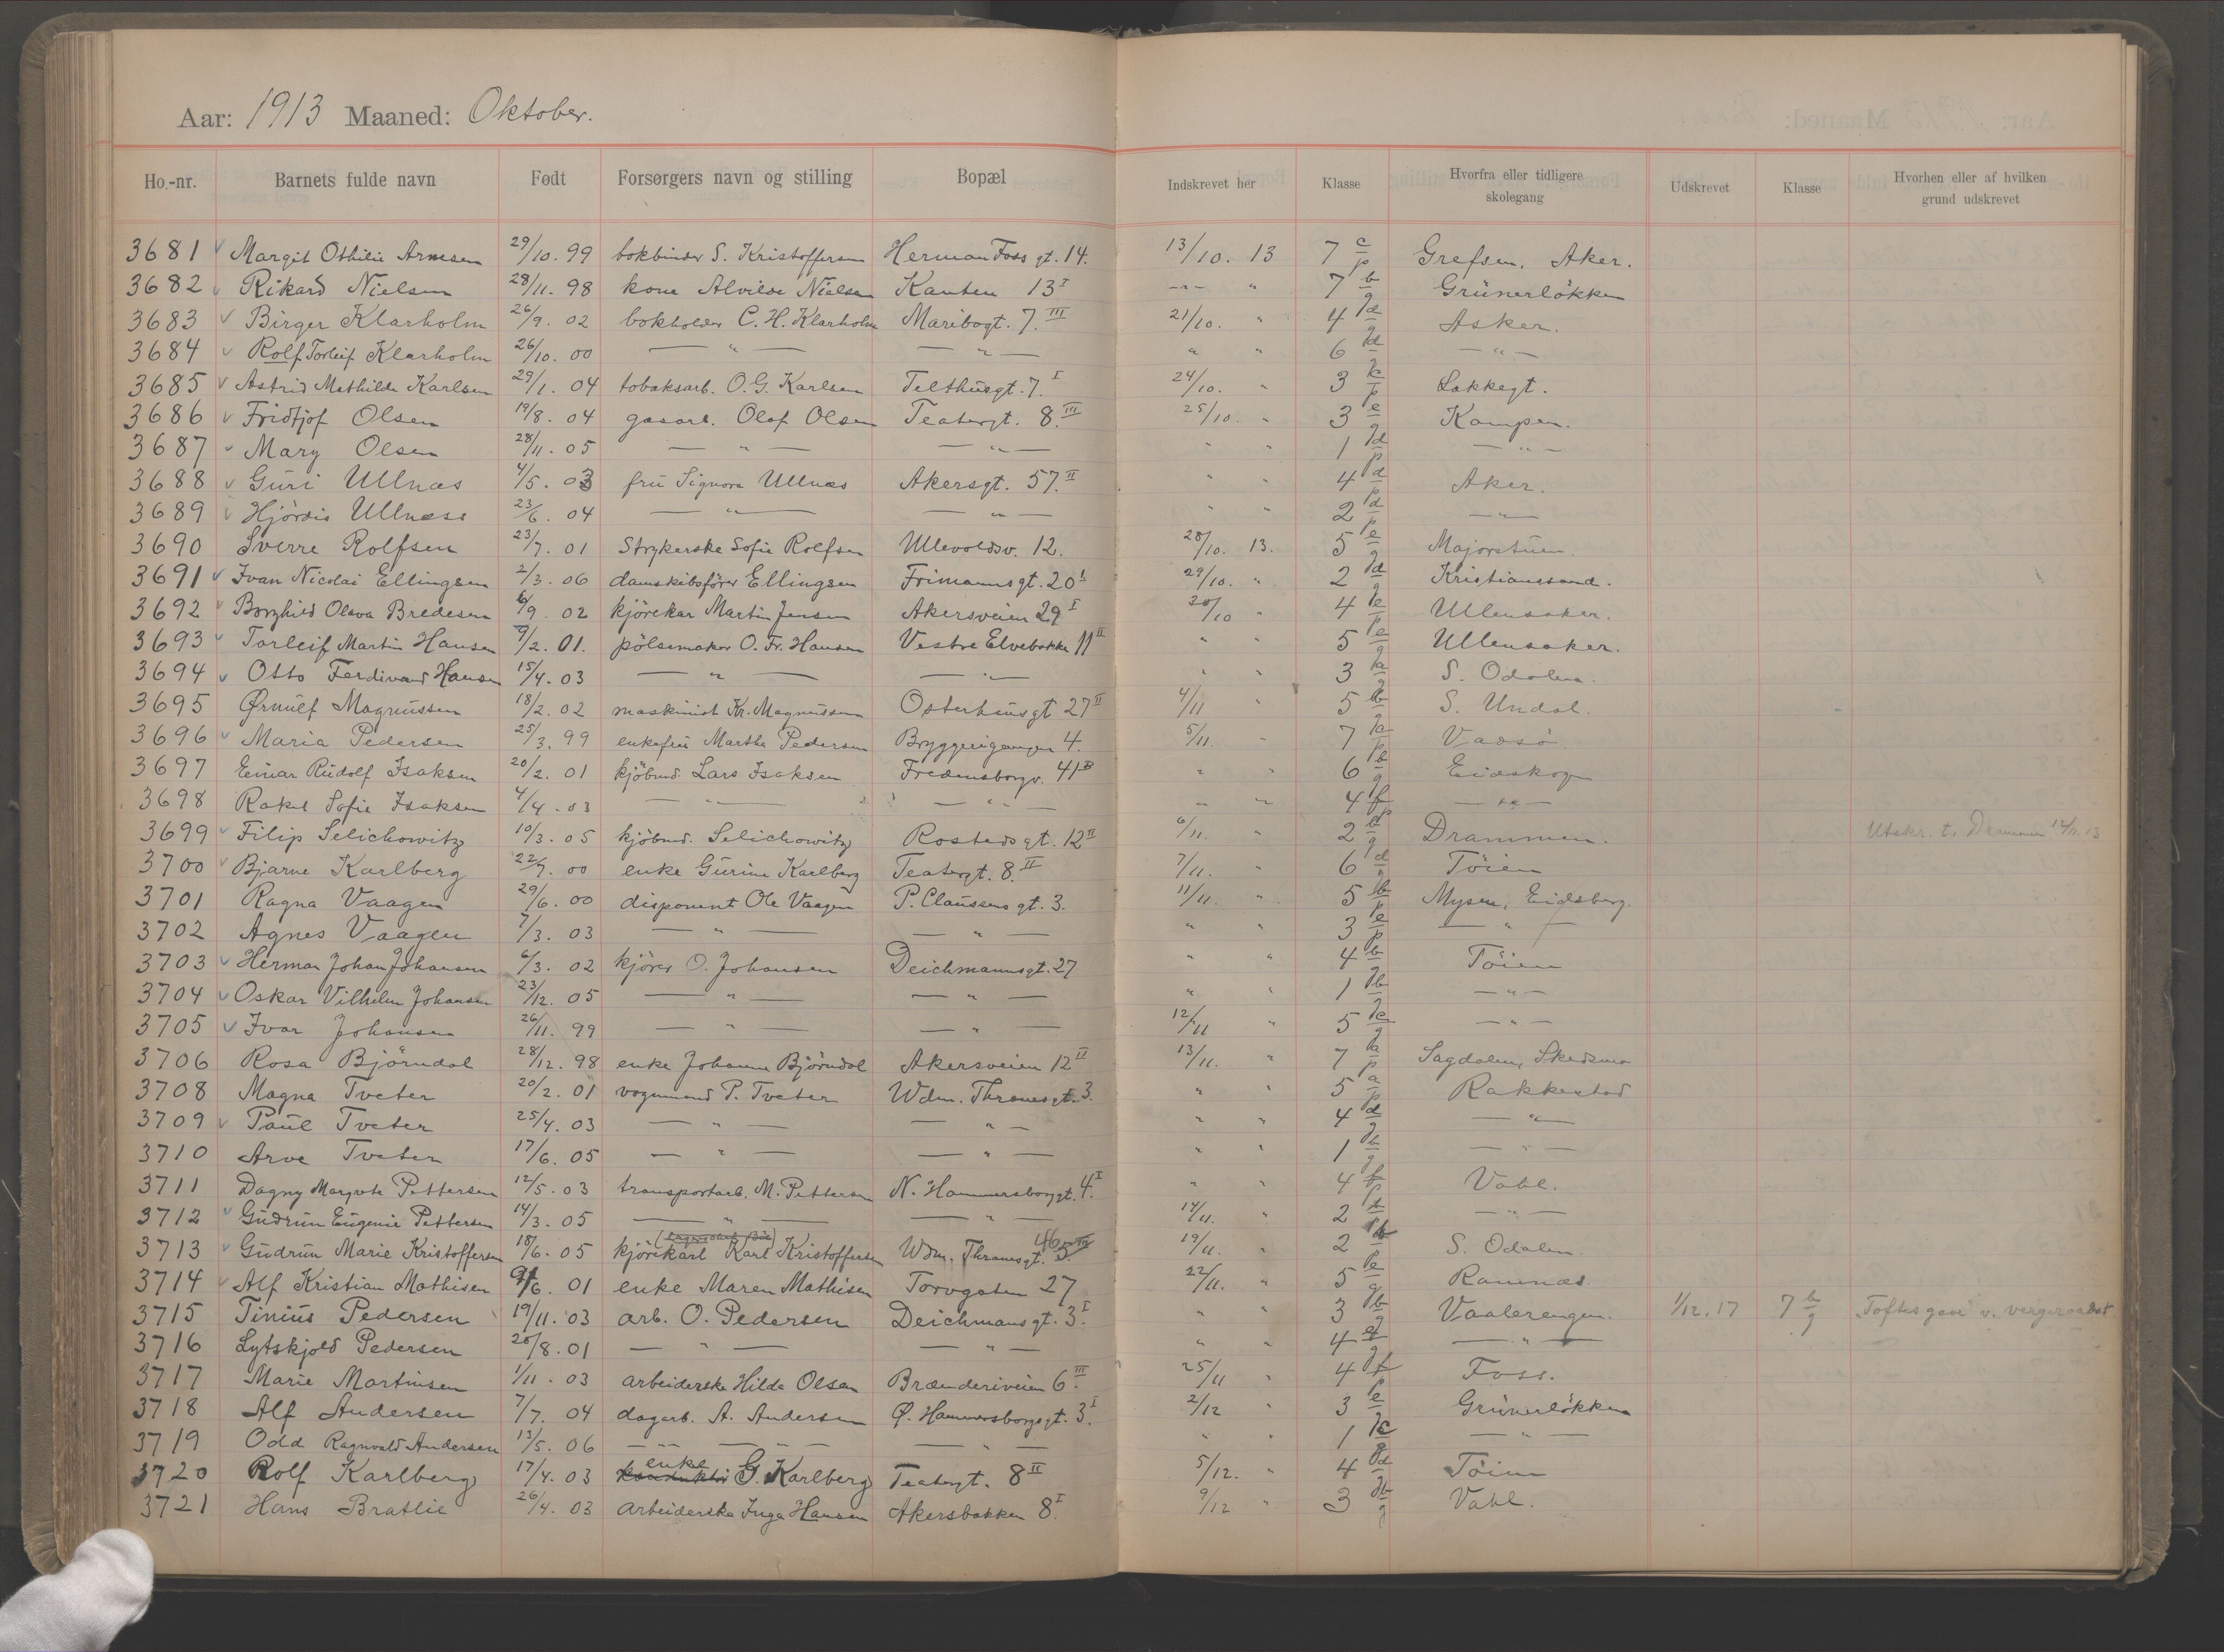 Aar: 1913 Maaned: Oktober.
Ho.-nr. Barnets fulde navn Født Forsørgers navn og stilling Bopæl Indskrevet her Klasse Hvorfra eller tidligere skolegang Udskrevet Klasse Hvorhen eller af hvilken grund udskrevet
3681 Margit Othilie Arnesen 29/10. 99 bokbinder S. Kristoffersen Herman Foss gt. 14. 13/10. 13 7 c/p Grefsen, Aker.
3682 Rikard Nielsen 28/11. 98 kone Alvilde Nielsen Kanten 13 I -"- " 7 b/g Grünerløkken
3683 Birger Klarholm 26/9. 02 bokholder C. H. Klarholm Maribogt. 7. III 21/10. " 4 d/g Asker.
3684 Rolf Torleif Klarholm 26/10. 00 — " — — " — " " 6 d/g — " —
3685 Astrid Mathilde Karlsen 29/1. 04 tobaksarb. O. G. Karlsen Telthusgt. 7. I 24/10. " 3 b/p Lakkegt.
3686 Fridtjof Olsen 19/8. 04 gasarb. Olaf Olsen Teatergt. 8. III 25/10. " 3 e/g Kampen.
3687 Mary Olsen 28/11. 05 — " — — " — " " 1 d/p — " —
3688 Guri Ullnæs 4/5. 03 fru Signora Ullnæs Akersgt. 57. II " " 4 d/p Aker.
3689 Hjördis Ullnæss 23/6. 04 — " — — " — " " 2 d/p — " —
3690 Sverre Rolfsen 23/7. 01 Strykerske Sofie Rolfsen Ullevoldsv. 12. 28/10. 13. 5 e/g Majorstuen.
3691 Ivan Nicolai Ellingsen 2/3. 06 damskibsfører Ellingsen Frimannsgt. 20 29/10. " 2 d/g Kristianssand.
3692 Borghild Olava Bredesen 6/9. 02 kjörekar Martin Jensen Akersveien 29 I 30/10 " 4 e/p Ullensaker.
3693 Torleif Martin Hansen 9/2. 01. pölsemaker O. Fr. Hansen Vestre Elvebakke 11 II " " 5 e/g Ullensaker.
3694 Otto Ferdinand Hansen 15/4. 03 — " — — " — " " 3 a/g S. Odalen.
3695 Ørnulf Magnussen 18/2. 02 maskinist Kr. Magnussen Osterhausgt 27 II 4/11 " 5 b/g S. Undal.
3696 Maria Pedersen 25/3. 99 enkefru Martha Pedersen Bryggerigangen 4. 5/11. " 7 a/p Vadsö.
3697 Einar Rudolf Isaksen 20/2. 01 kjöbmd. Lars Isaksen Fredensborgv. 41 B " " 6 b/g Eidskogn
3698 Rakel Sofie Isaksen 4/4. 03 — " — — " — " " 4 f/p — " —
3699 Filip Selichowitz 10/3. 05 kjöbmd. Selichowitz Rostedsgt. 12 II 6/11. " 2 b/g Drammen. Utskr. t. Drammen 14/11. 13
3700 Bjarne Karlberg 22/7. 00 enke Gurine Karlberg Teatergt. 8. II 7/11. " 6 d/g Töien
3701 Ragna Vaagen 29/6. 00 disponent Ole Vaagen P. Claussens gt. 3. 11/11. " 5 b/p Mysen, Eidsberg.
3702 Agnes Vaagen 7/3. 03 — " — — " — " " 3 e/p — " —
3703 Herman Johan Johansen 6/3. 02 kjörer O. Johansen Deichmannsgt. 27 " " 4 b/g Töien
3704 Oskar Vilhelm Johansen 23/12. 05 — " — — " — " " 1 b/g — " —
3705 Ivar Johansen 26/11. 99 — " — — " 12/11 " 5 c/g — " —
3706 Rosa Björndal 28/12. 98 enke Johanne Björndal Akersveien 12 II 13/11. " 7 a/p Sagdalen, Skedsmo
3708 Magna Tveter 20/2. 01 vognmand P. Tveter Wdm. Thranesgt. 3. " " 5 a/p Rakkestad
3709 Paul Tveter 25/4. 03 — " — — " — " " 4 d/g — " —
3710 Arve Tveter 17/6. 05 — " — — " — " " 1 b/g — " —
3711 Dagny Margrete Pettersen 12/5. 03 transportarb. M. Pettersen N. Hammersborggt. 4. I " " 4 f/p Vahl.
3712 Gudrun Eugenie Pettersen 14/3. 05 — " — — " — 14/11. " 2 b/p — " —
3713 Gudrun Marie Kristoffersen 18/6. 05 kjörekarl Karl Kristoffersen Wdm. Thranesgt. 5. 46 19/11. " 2 b/p S. Odalen.
3714 Alf Kristian Mathisen 9/6. 01 enke Maren Mathisen Torvgaten 27 22/11. " 5 e/g Ramnæs.
3715 Tinius Pedersen 19/11. 03 arb. O. Pedersen Deichmansgt. 3. I " " 3 b/g Vaalerengen. 1/12. 17 7 b/g "Toftes gave" v. vergeraadet
3716 Lytskjold Pedersen 28/8. 01 — " — — " — " " 4 — " —
3717 Marie Martinsen 1/11. 03 arbeiderske Hilda Olsen Brænderiveien 6. III 25/11 " 4 f/p Foss.
3718 Alf Andersen 7/7. 04 dagarb. A. Andersen Ø. Hammersborgsgt. 3. I 2/12 " 3 e/g Grünerløkken
3719 Odd Ragnvald Andersen 13/5. 06 — " — " — — " — " " 1 c/g — " —
3720 Rolf Karlberg 17/4. 03 konduktör enke G. Karlberg Teatergt. 8 II 5/12. " 4 d/g Töien
3721 Hans Bratlie 26/4. 03 arbeiderske Inga Hansen Akersbakken 8. I 9/12 " 3 b/g Vahl.